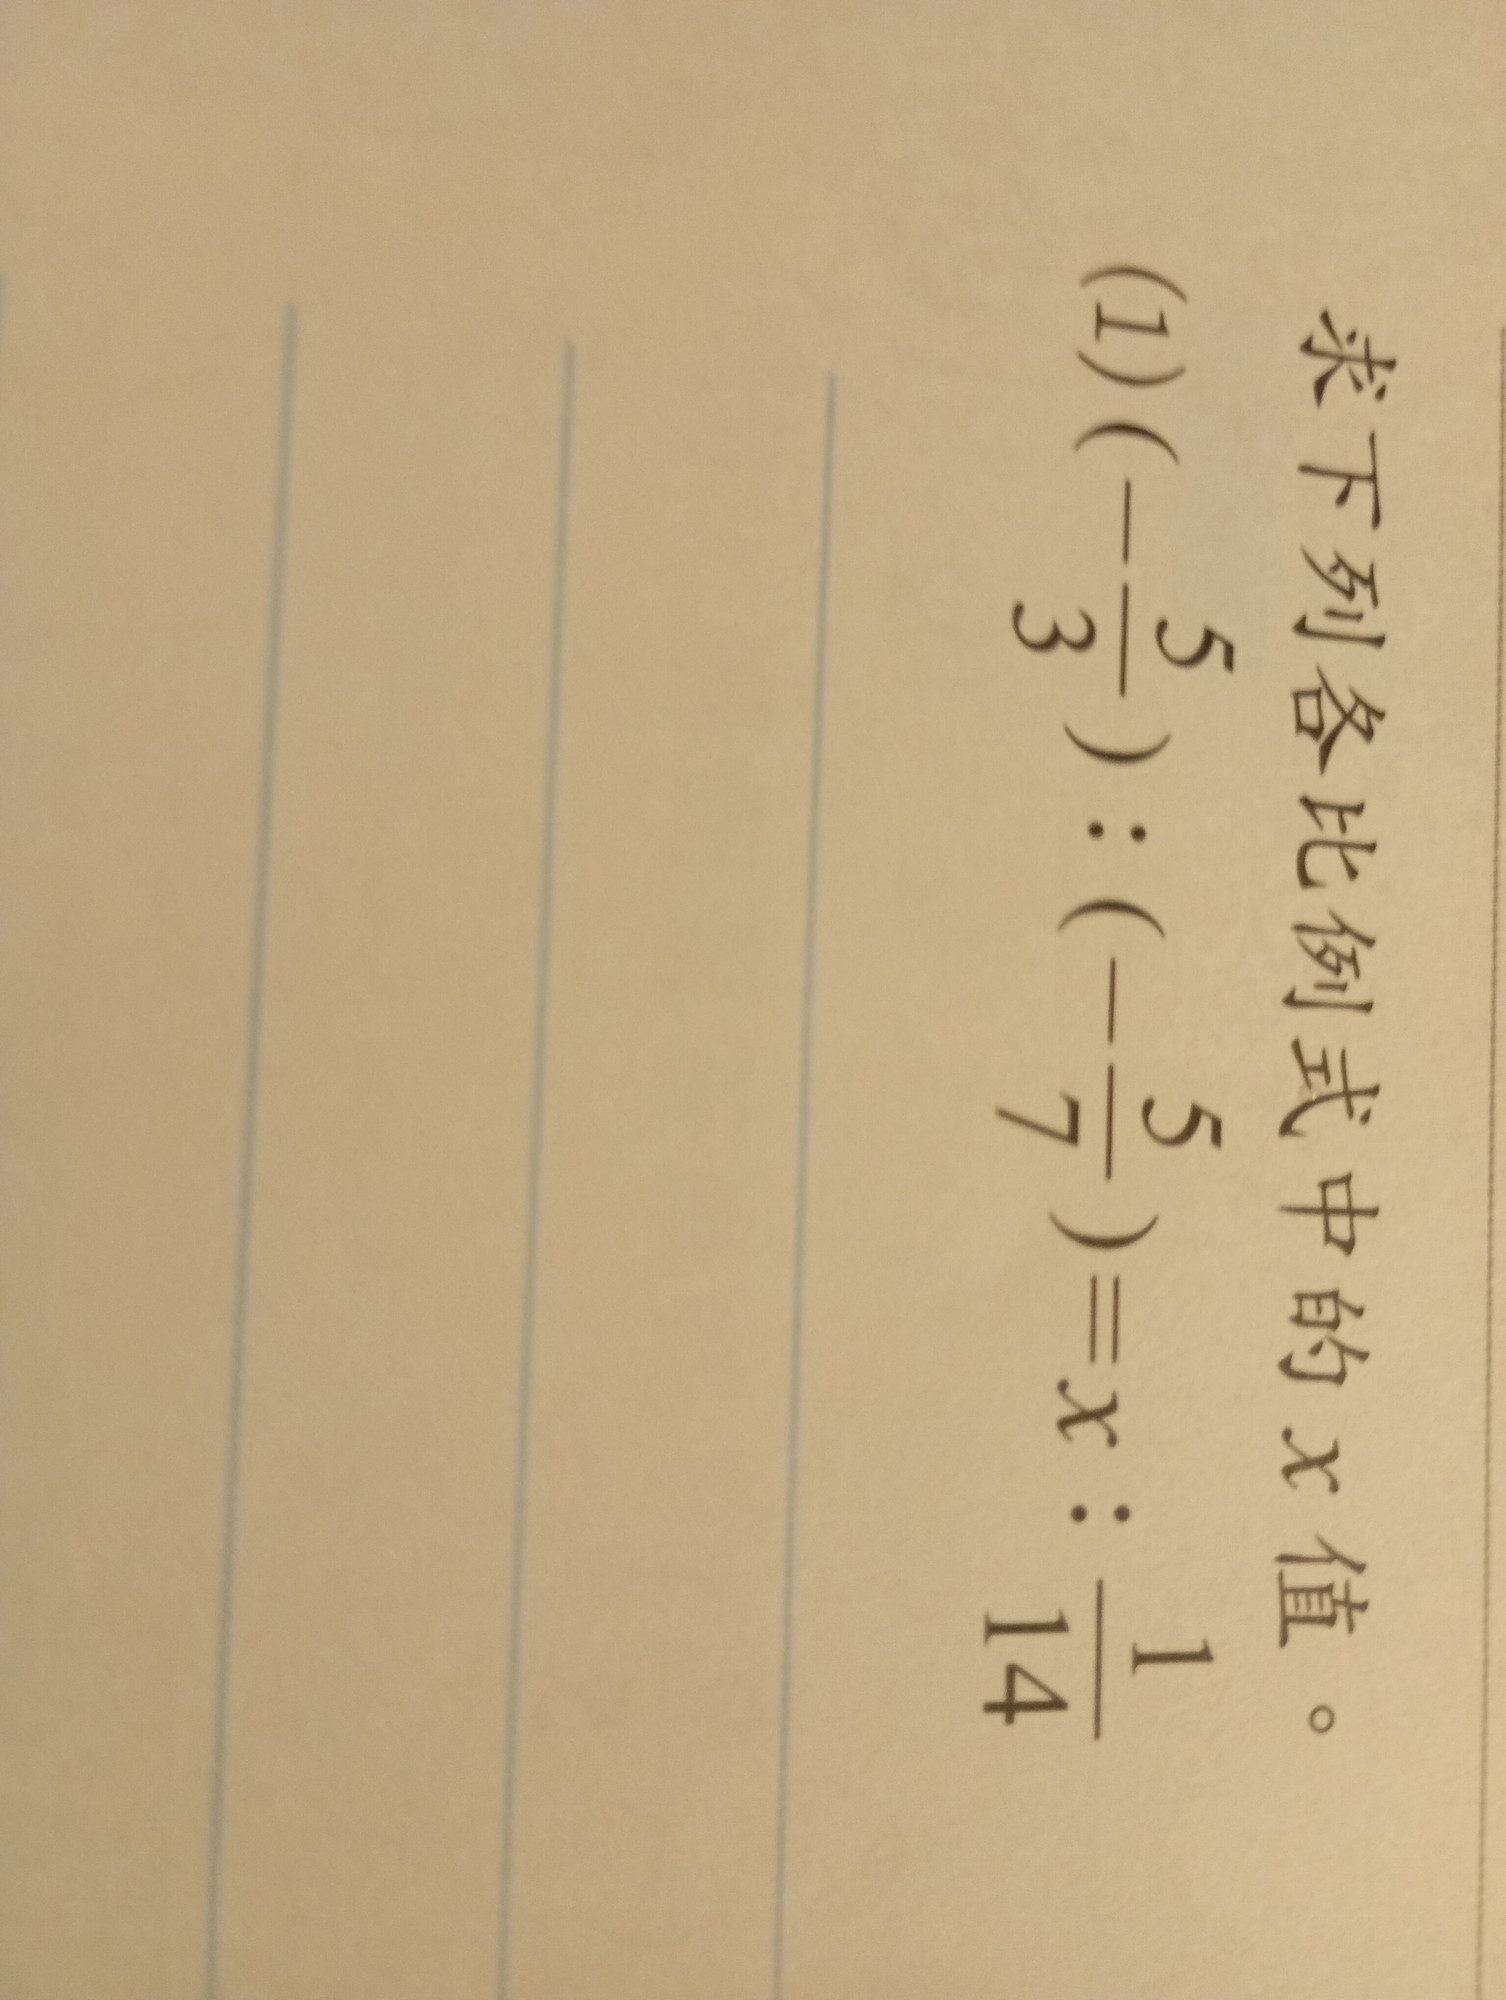 求下列各比例式中的 x 值。
(1) (-5/3) : (-5/7) = x : 1/14